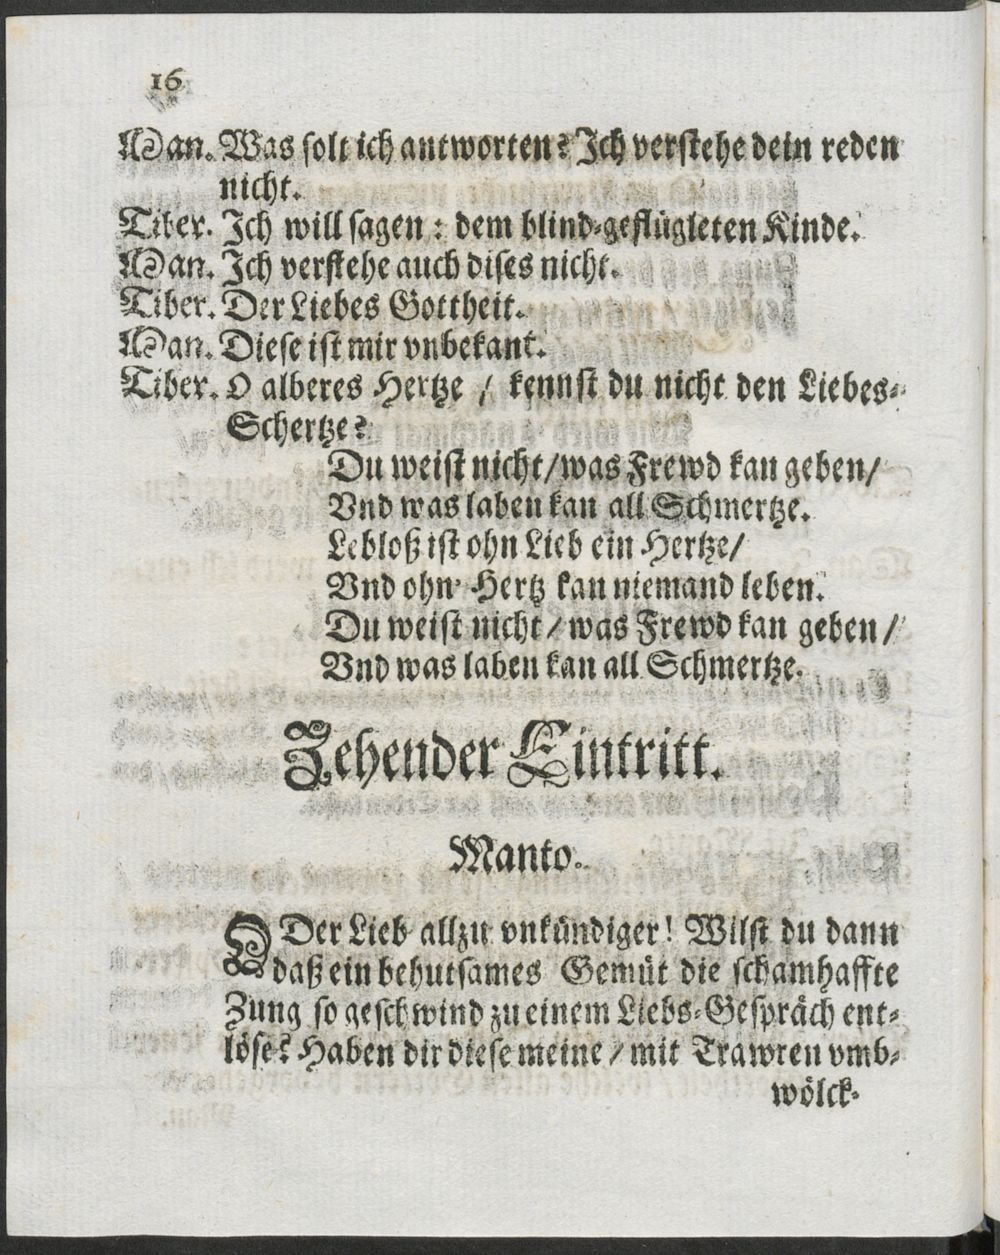 16
Man. Was solt ich antworten? Ich verstehe dein reden
nicht.
Tiber. Ich will sagen: dem blind-geflügleten Kinde.
Man. Ich verstehe auch dises nicht.
Tiber. Der Liebes Gottheit.
Man. Diese ist mir vnbekant.
Tiber. O alberes Hertze / kennst du nicht den Liebes-
Schertze?
Du weist nicht/was Frewd kan geben/
Vnd was laben kan all Schmertze.
Lebloß ist ohn Lieb ein Hertze/
Vnd ohn Hertz kan niemand leben.
Du weist nicht / was Frewd kan geben /
Vnd was laben kan all Schmertze.
Zehender Eintritt.
Manto.
O Der Lieb allzu vnkündiger! Wilst du dann
daß ein behutsames Gemüt die schamhaffte
Zung so geschwind zu einem Liebs-Gespräch ent-
löse? Haben dir diese meine / mit Trawren vmb-
wölck-